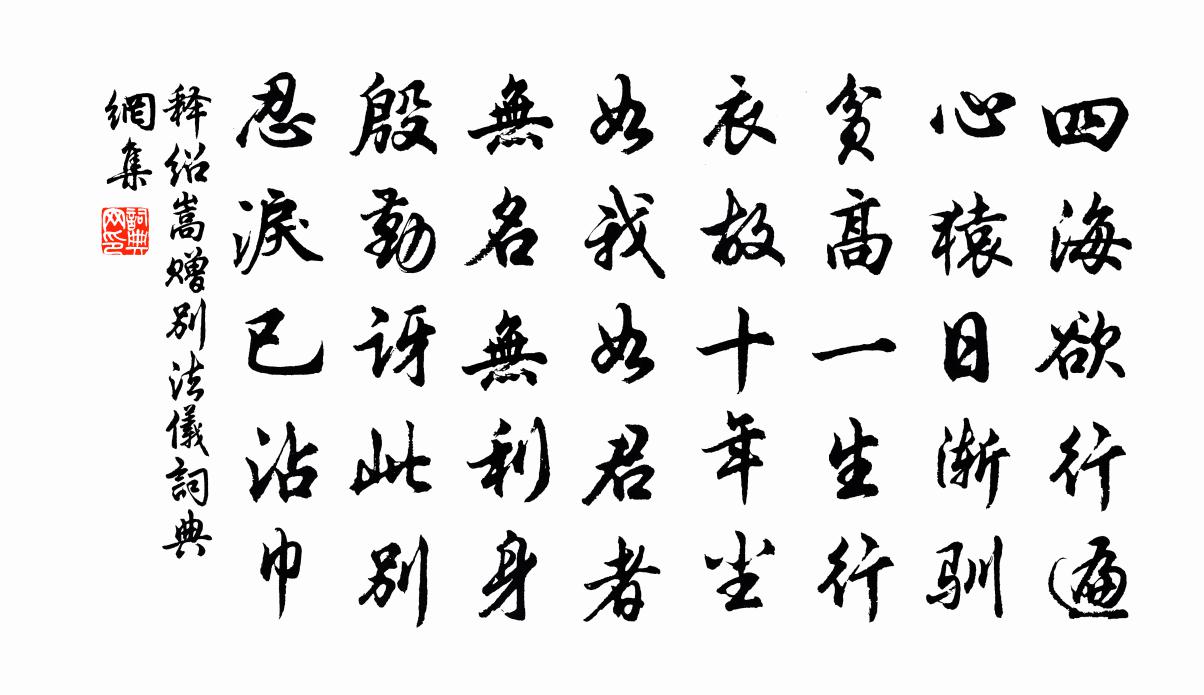 四海欲行遍
心猿日渐驯
貧高一生行
衣故十年尘
如我如君者
無名無利身
殷勤訝此别
忍淚已沾巾
释绍嵩赠别法儀詞典
網集
詞典网印